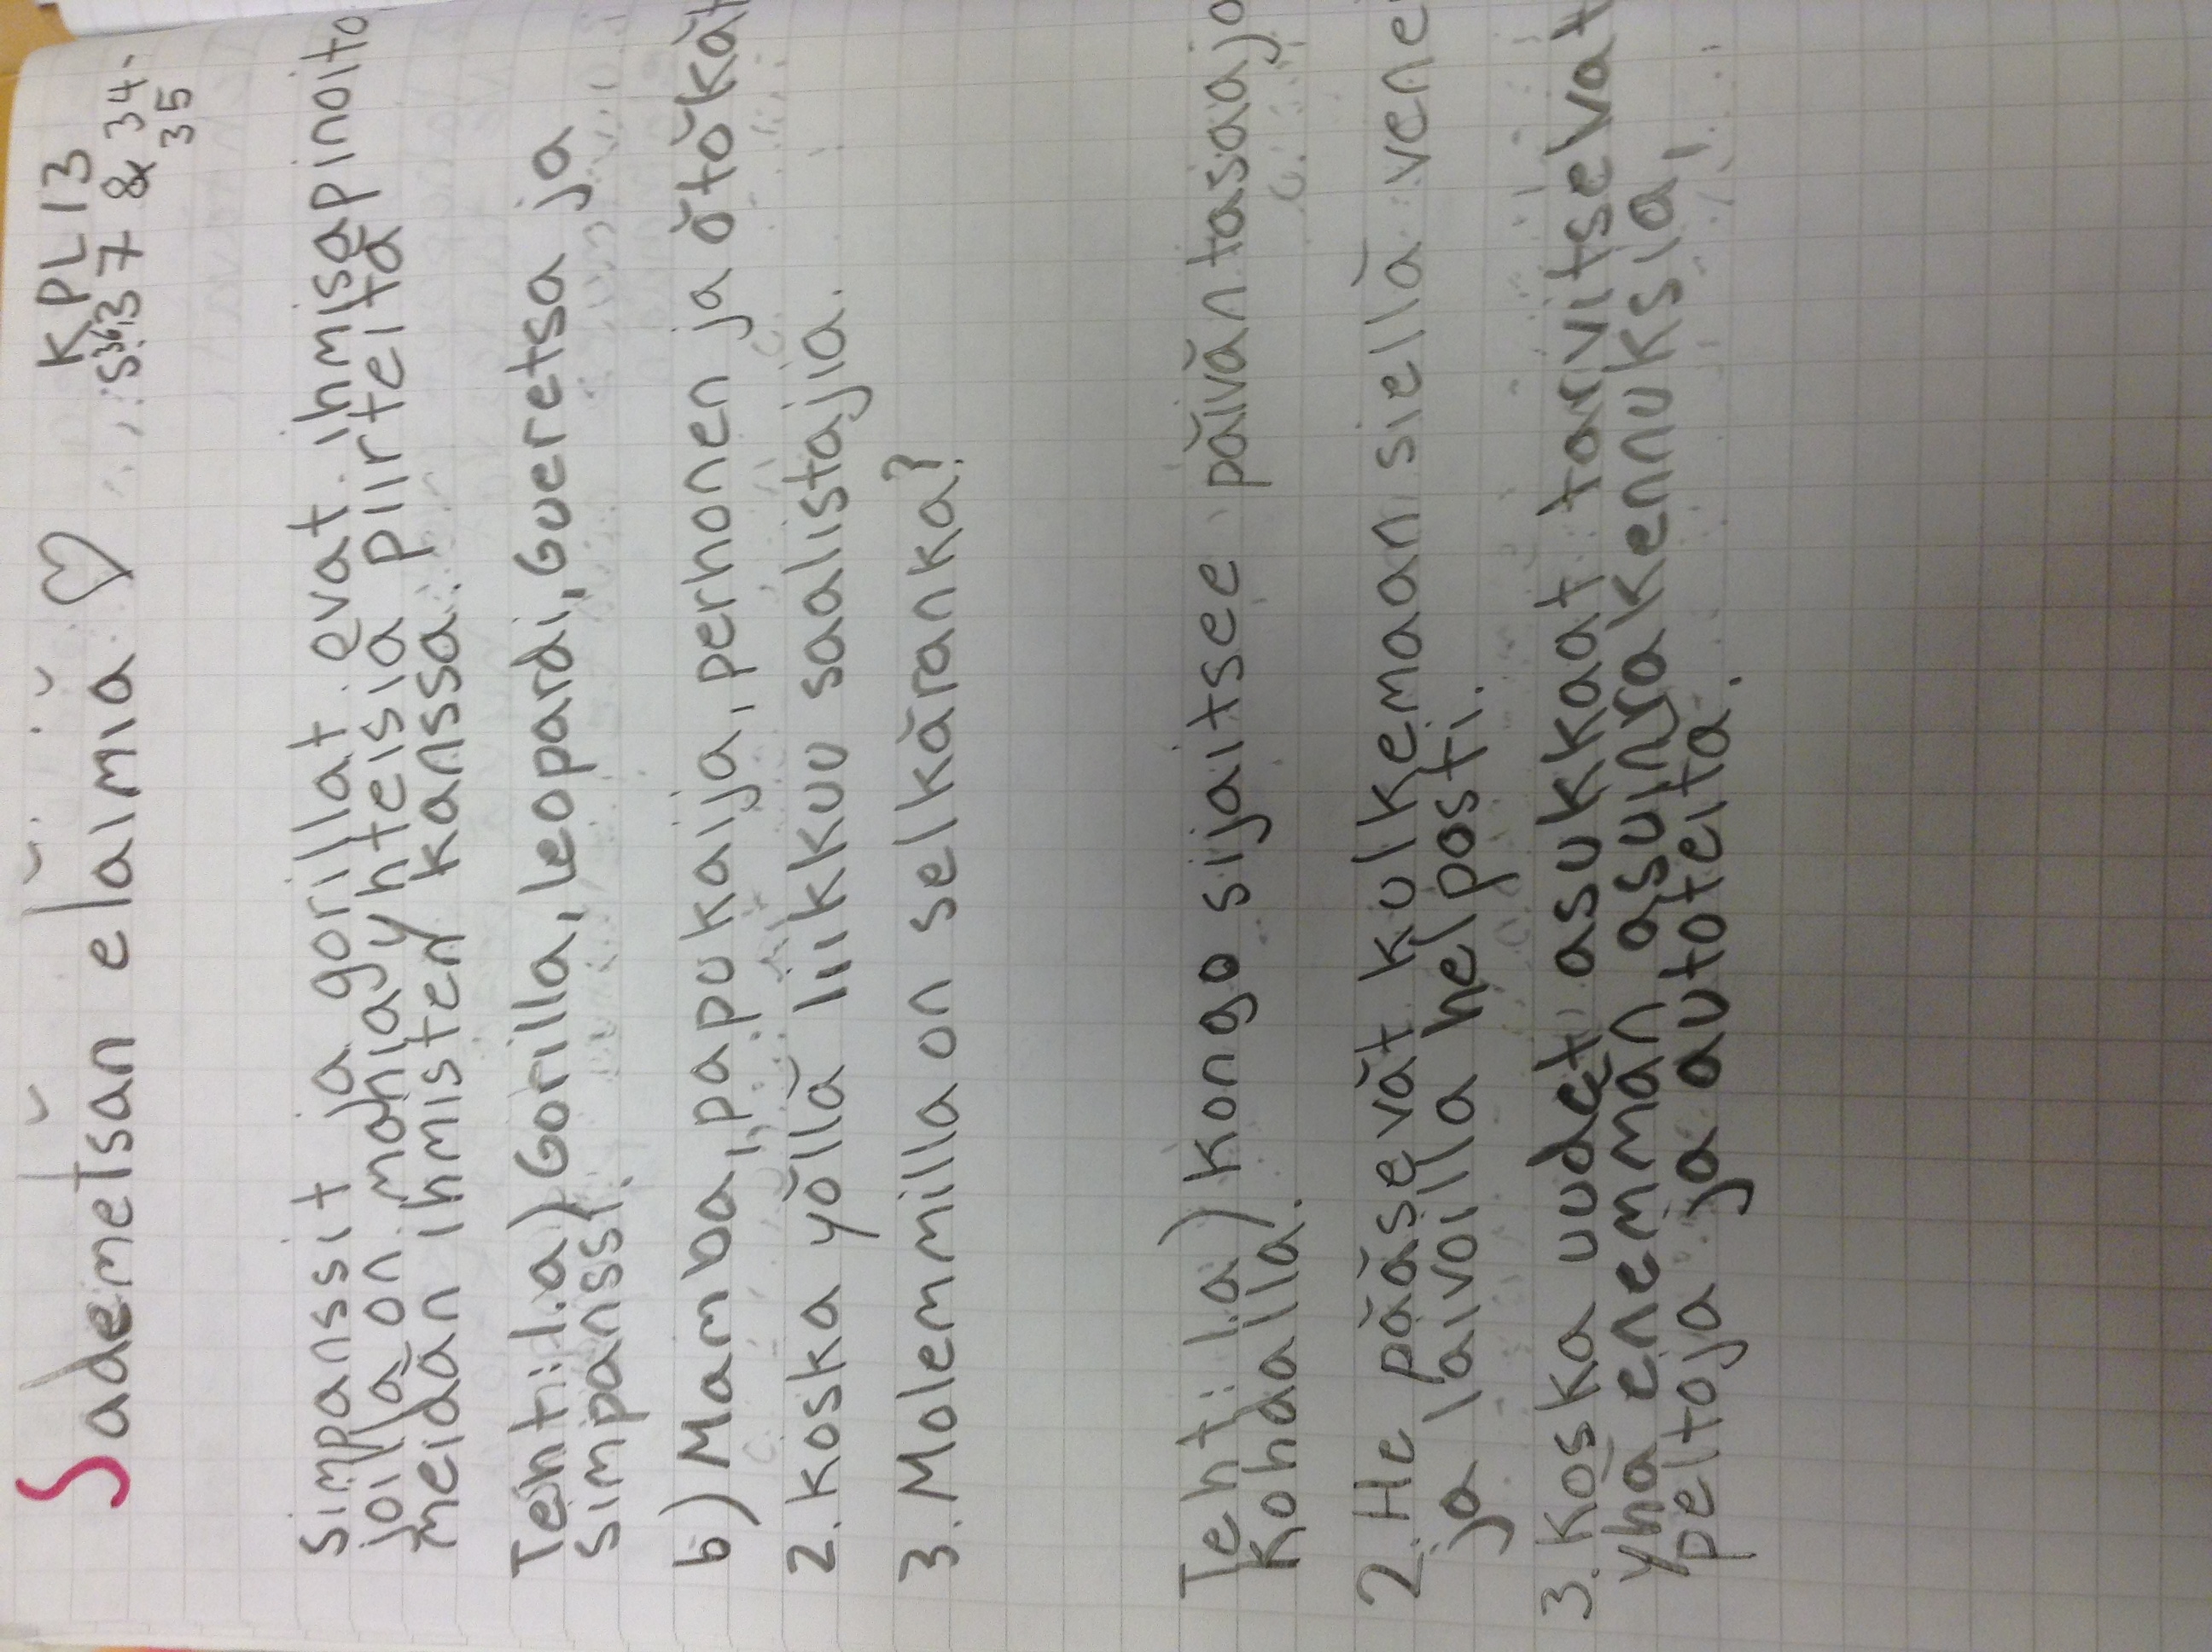 Sademetsän eläimiä ♡ KPL 13
s. 36, 37 & 34-
35
simpanssit ja gorillat. evat ihmisapinoita
joilla on monia yhteisiä piirteitä
meidän ihmisten kanssa.
Teht: 1.a) Gorilla, leopardi, Gueretsa ja
simpanssi.
b) Mamba, papukaija, perhonen ja ötökät
2. koska yöllä liikkuu saalistajia.
3. Molemmilla on selkäranka?
Teht: 1.a) Kongo sijaitsee päiväntasaaja
Kohdalla.
2. He pääsevät kulkemaan siellä vene
ja laivoilla helposti.
3. Koska uudet asukkaat tarvitselvat
yhä enemmän asuinrakennuksia,
peltoja ja autoteitä.